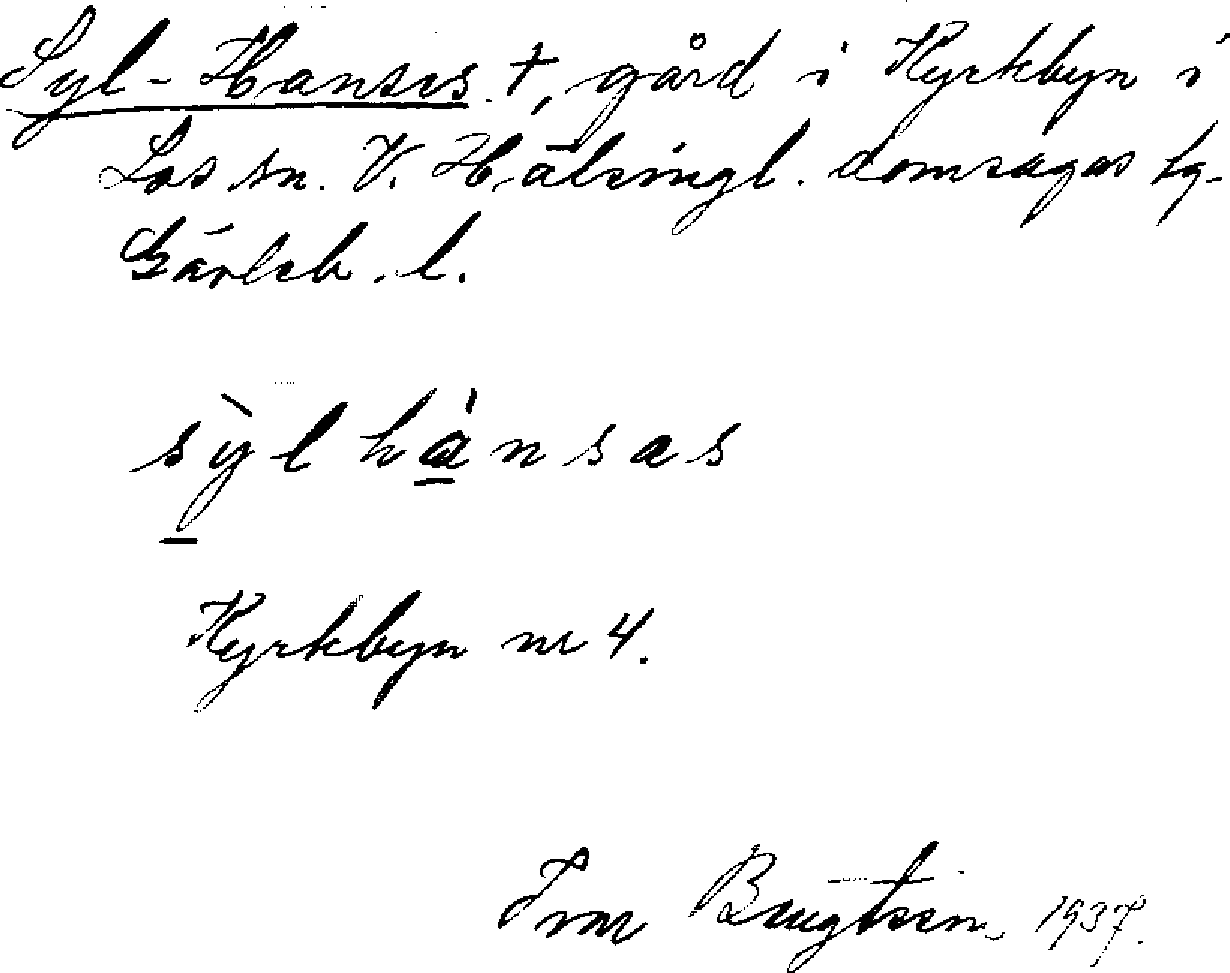 Syl-Hanses †, gård i Kyrkbyn i
Los sn. V. Hälsingl. domsagas tg.
Gävleb. l.
sỳlhánsas
Kyrkbyn nr 4.
Ivar Bengtsson 1937.